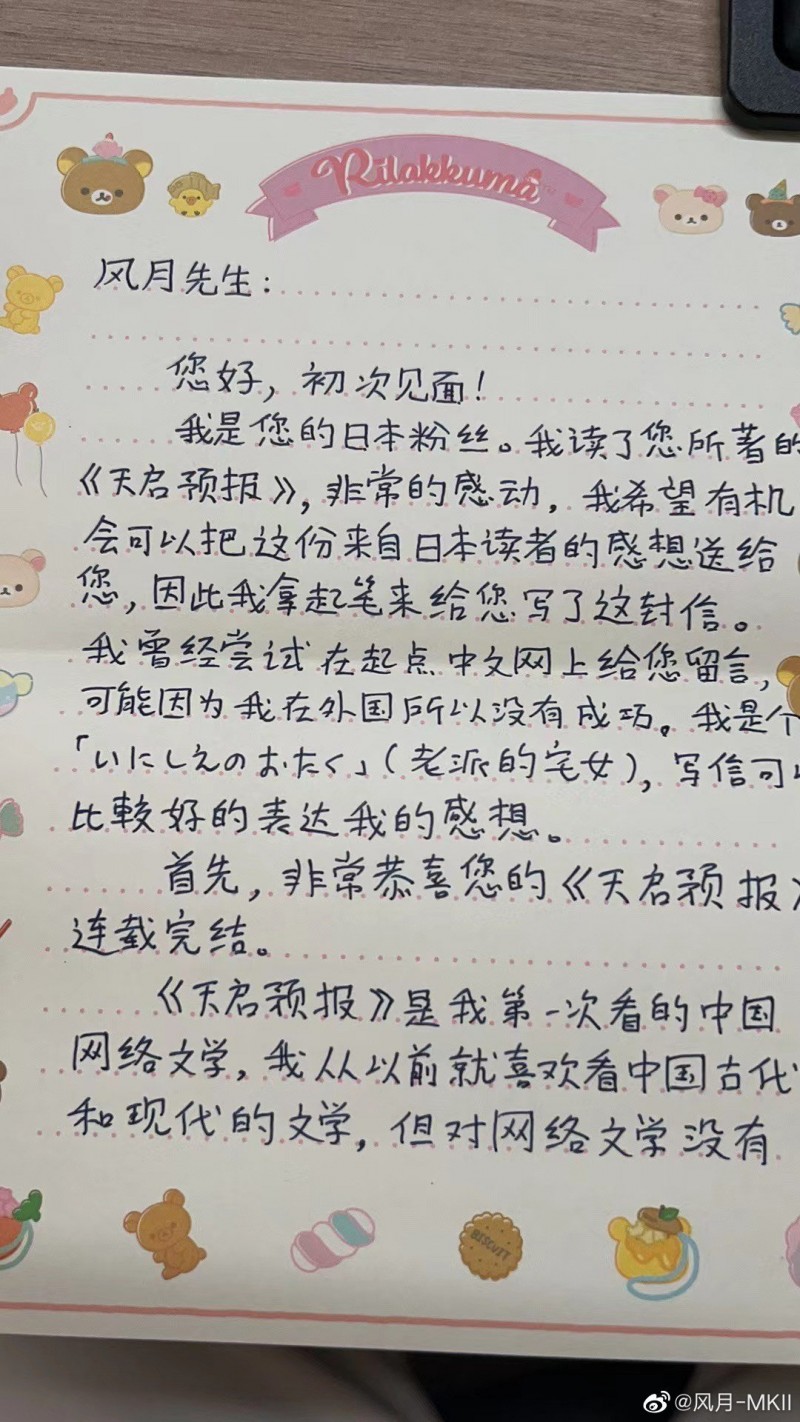 Rilakkuma
风月先生：
您好，初次见面！
我是您的日本粉丝。我读了您所著的
《天启预报》，非常的感动，我希望有机
会可以把这份来自日本读者的感想送给
您，因此我拿起笔来给您写了这封信。
我曾经尝试在起点中文网上给您留言，
可能因为我在外国所以没有成功。我是个
「いにしえのおたく」（老派的宅女），写信可以
比較好的表达我的感想。
首先，非常恭喜您的《天启预报》
连载完结。
《天启预报》是我第一次看的中国
网络文学，我从以前就喜欢看中国古代
和现代的文学，但对网络文学没有
BISCUIT
@风月-MKII